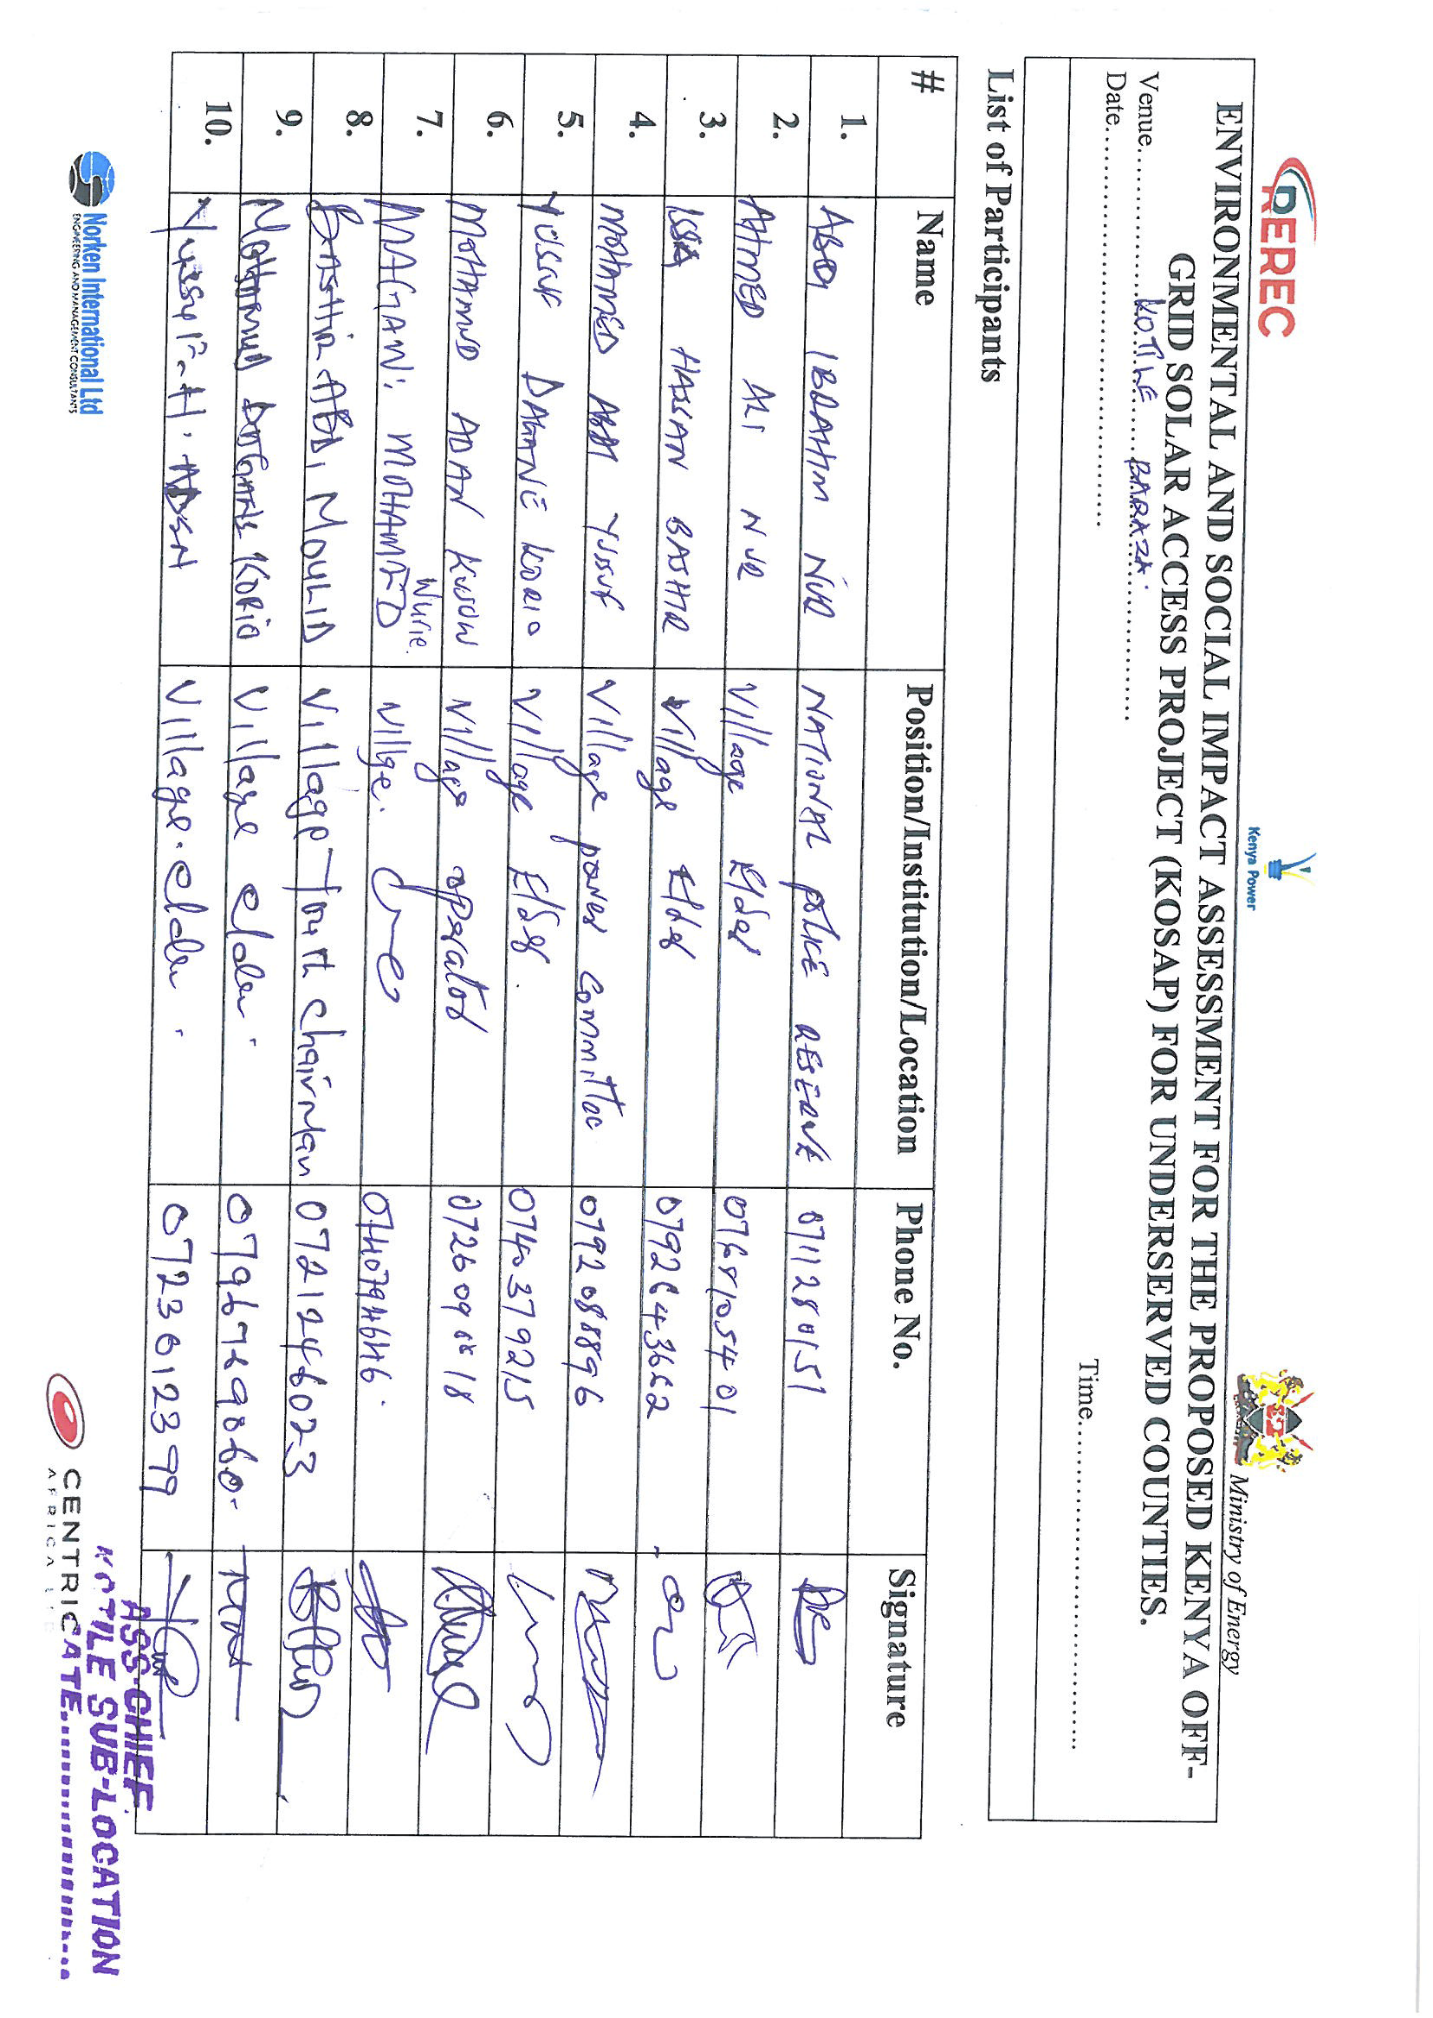 REREC
Kenya Power
Ministry of Energy
ENVIRONMENTAL AND SOCIAL IMPACT ASSESSMENT FOR THE PROPOSED KENYA OFF-
GRID SOLAR ACCESS PROJECT (KOSAP) FOR UNDERSERVED COUNTIES.
Venue KOTILE BARAZA.
Date Time
List of Participants
# Name Position/Institution/Location Phone No. Signature
1. ABDI IBRAHIM NUR NATIONAL POLICE RESERVE 0711280151
2. AHMED ALI NUR Village Elder 0768105401
3. ISSA HASSAN BASHIR Village Elder 0792643662
4. MOHAMED ABDI YUSSUF Village power Committee 0792088896
5. YUSSUF DAGANE KORIO Village Elder. 0740379215
6. MOHAMUD ADAN KUSOW Village operator
7. MAGANI MOHAMED Wurie. Village.
8. BASHIR ABDI MOULID Village chairman 0721246023
9. Mohamud KORIO Village elder. 0796769060.
10. Yussuf H. Village.elder. 0723012399
Norken International Ltd
ENGINEERING AND MANAGEMENT CONSULTANTS
CENTRIC
AFRICA
ASS-CHIEF
KOTILE SUB-LOCATION